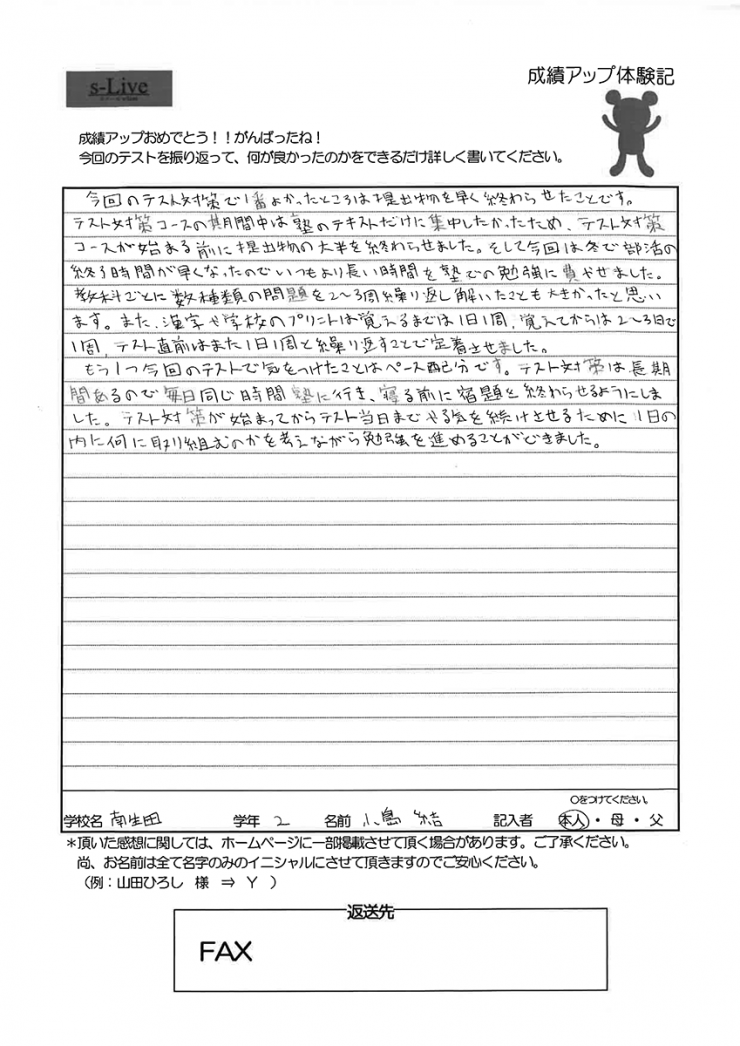 s-Live
成績アップ体験記
成績アップおめでとう！！がんばったね！
今回のテストを振り返って、何が良かったのかをできるだけ詳しく書いてください。
今回のテスト対策で1番よかったところは提出物を早く終わらせたことです。
テスト対策コースの期間中は塾のテキストだけに集中したかったため、テスト対策
コースが始まる前に提出物の大半を終わらせました。そして今回は冬で部活の
終了時間が早くなったのでいつもより長い時間を塾での勉強に費やせました。
教科ごとに数種類の問題を2～3周繰り返し解いたことも大きかったと思い
ます。また、漢字や学校のプリントは覚えるまでは1日1周、覚えてからは2～3日で
1周、テスト直前はまた1日1周と繰り返すことで定着させました。
もう1つ今回のテストで気をつけたことはペース配分です。テスト対策は長期
間あるので毎日同じ時間塾に行き、寝る前に宿題を終わらせるようにしま
した。テスト対策が始まってからテスト当日までやる気を続けさせるために1日の
内に何に取り組むのかを考えながら勉強を進めることができました。
○をつけてください。
学校名 南生田 学年 2 名前 小島 結 記入者 本人・母・父
＊頂いた感想に関しては、ホームページに一部掲載させて頂く場合があります。ご了承ください。
尚、お名前は全て名字のみのイニシャルにさせて頂きますのでご安心ください。
（例：山田ひろし 様 ⇒ Y ）
返送先
FAX